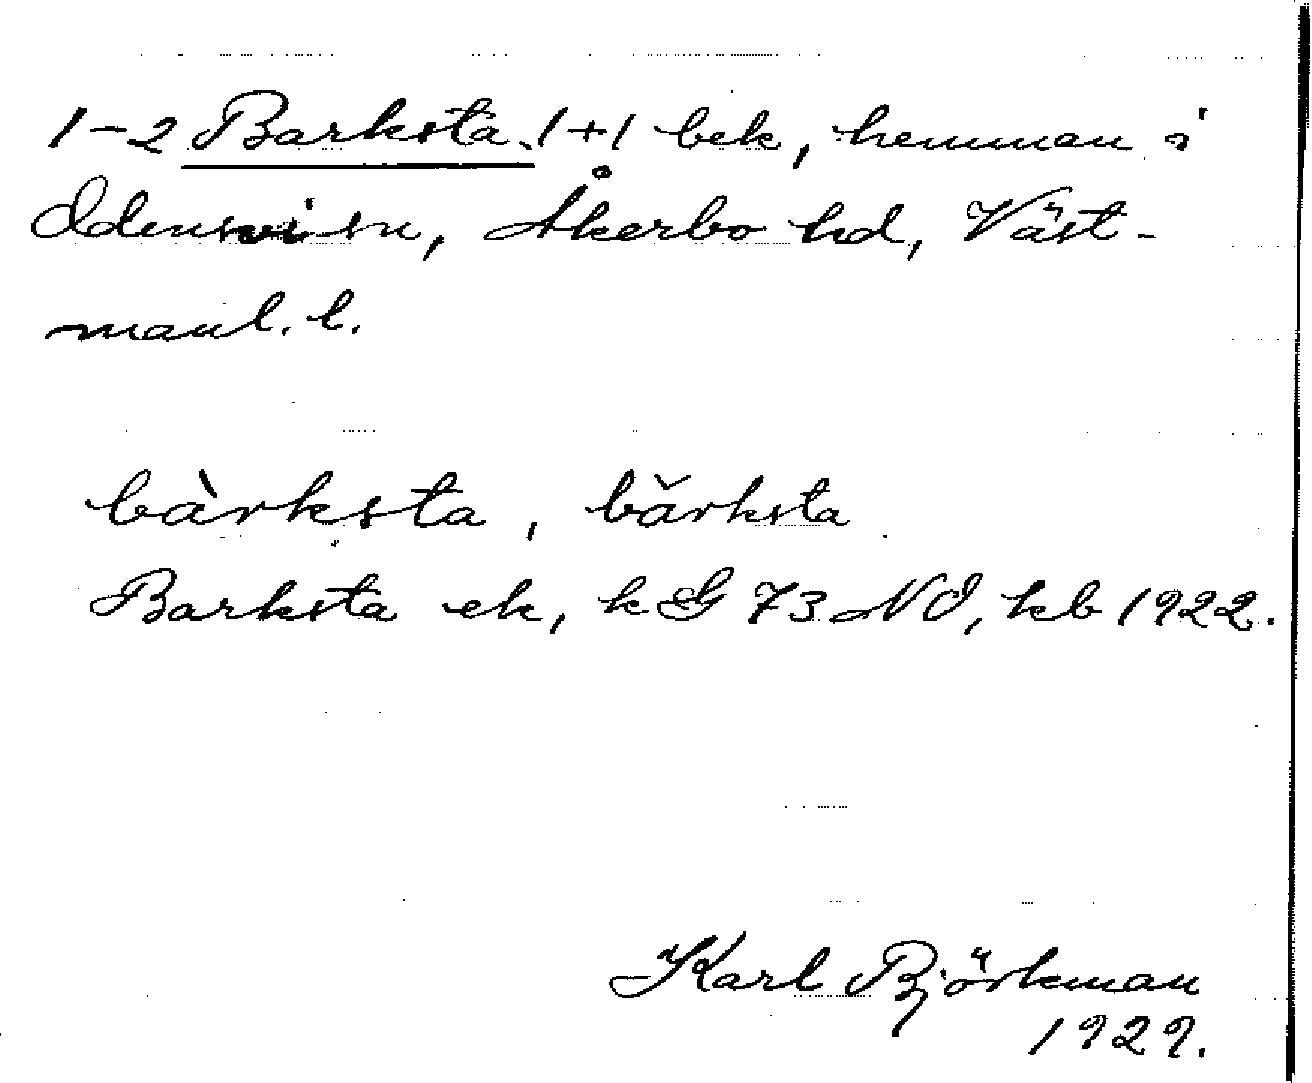 1-2 Barksta. 1+1 bek, hemman i
Odensvi sn, Åkerbo hd, Väst-
manl. l.
bàrksta, bărksta
Barksta ek, k G 73 NO, kb 1922.
Karl Björkman
1929.